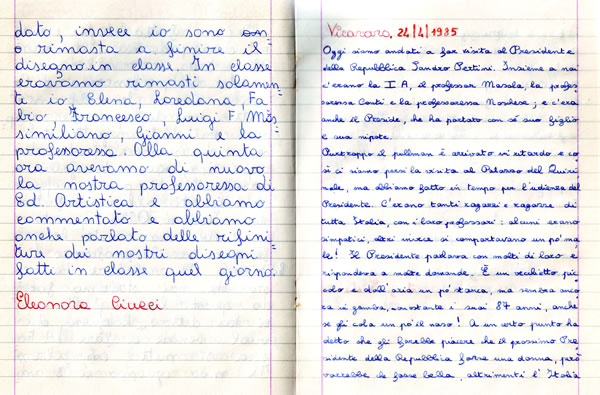 dato, invece io sono an-
o rimasta a finire il
disegno in classe. In classe
eravamo rimasti solamen-
te io, Elena, Loredana, Fa-
bio, Francesco, Luigi F. Mas-
similiano, Gianni e la
professoressa. Alla quinta
ora avevamo di nuovo
la nostra professoressa di
Ed. Artistica e abbiamo
commentato e abbiamo
anche parlato delle rifini-
ture dei nostri disegni
fatti in classe quel giorno.
Eleonora Ciucci
Vicovaro, 24/4/1985
Oggi siamo andati a far visita al Presidente
della Repubblica Sandro Pertini. Insieme a noi
c'erano la I A, il professor Masala, la profes-
soressa Conti e la professoressa Moschese; e c'era
anche il Preside, che ha portato con sé suo figlio
e sua nipote.
Purtroppo il pullman è arrivato in ritardo e co-
sì ci siamo persi la visita al Palazzo del Quiri-
nale, ma abbiamo fatto in tempo per l'udienza del
Presidente. C'erano tanti ragazzi e ragazze di
tutta Italia, con i loro professori: alcuni erano
simpatici, altri invece si comportavano un po' ma-
le! Il Presidente parlava con molti di loro e
rispondeva a molte domande. È un vecchietto pic-
colo e dall'aria un po' stanca, ma sembra anco-
ra in gamba, nonostante i suoi 87 anni, anche
se gli cola un po' il naso! A un certo punto ha
detto che gli farebbe piacere che il prossimo Pre-
sidente della Repubblica fosse una donna, però
vorrebbe che fosse bella, altrimenti l'Italia